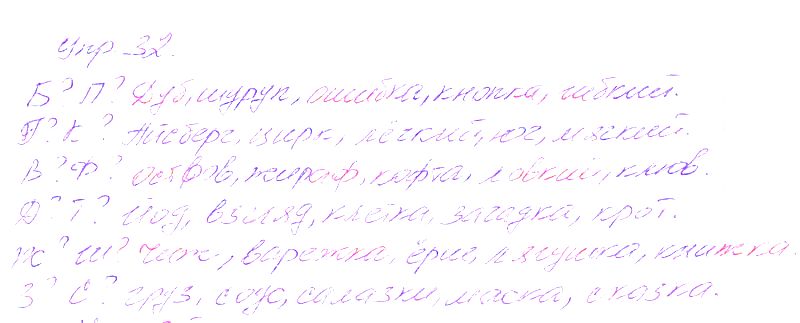 Упр 32.
Б? П? Дуб, шуруп, ошибка, кнопка, гибкий.
Г? К? Айсберг, цирк, лёгкий, юг, мягкий.
В? Ф? остров, жираф, кофта, ловкий, клюв.
Д? Т? йод, взгляд, клетка, загадка, крот.
Ж? Ш? Чиж, варежка, ёрш, лягушка, книжка.
З? С? груз, соус, салазки, маска, сказка.